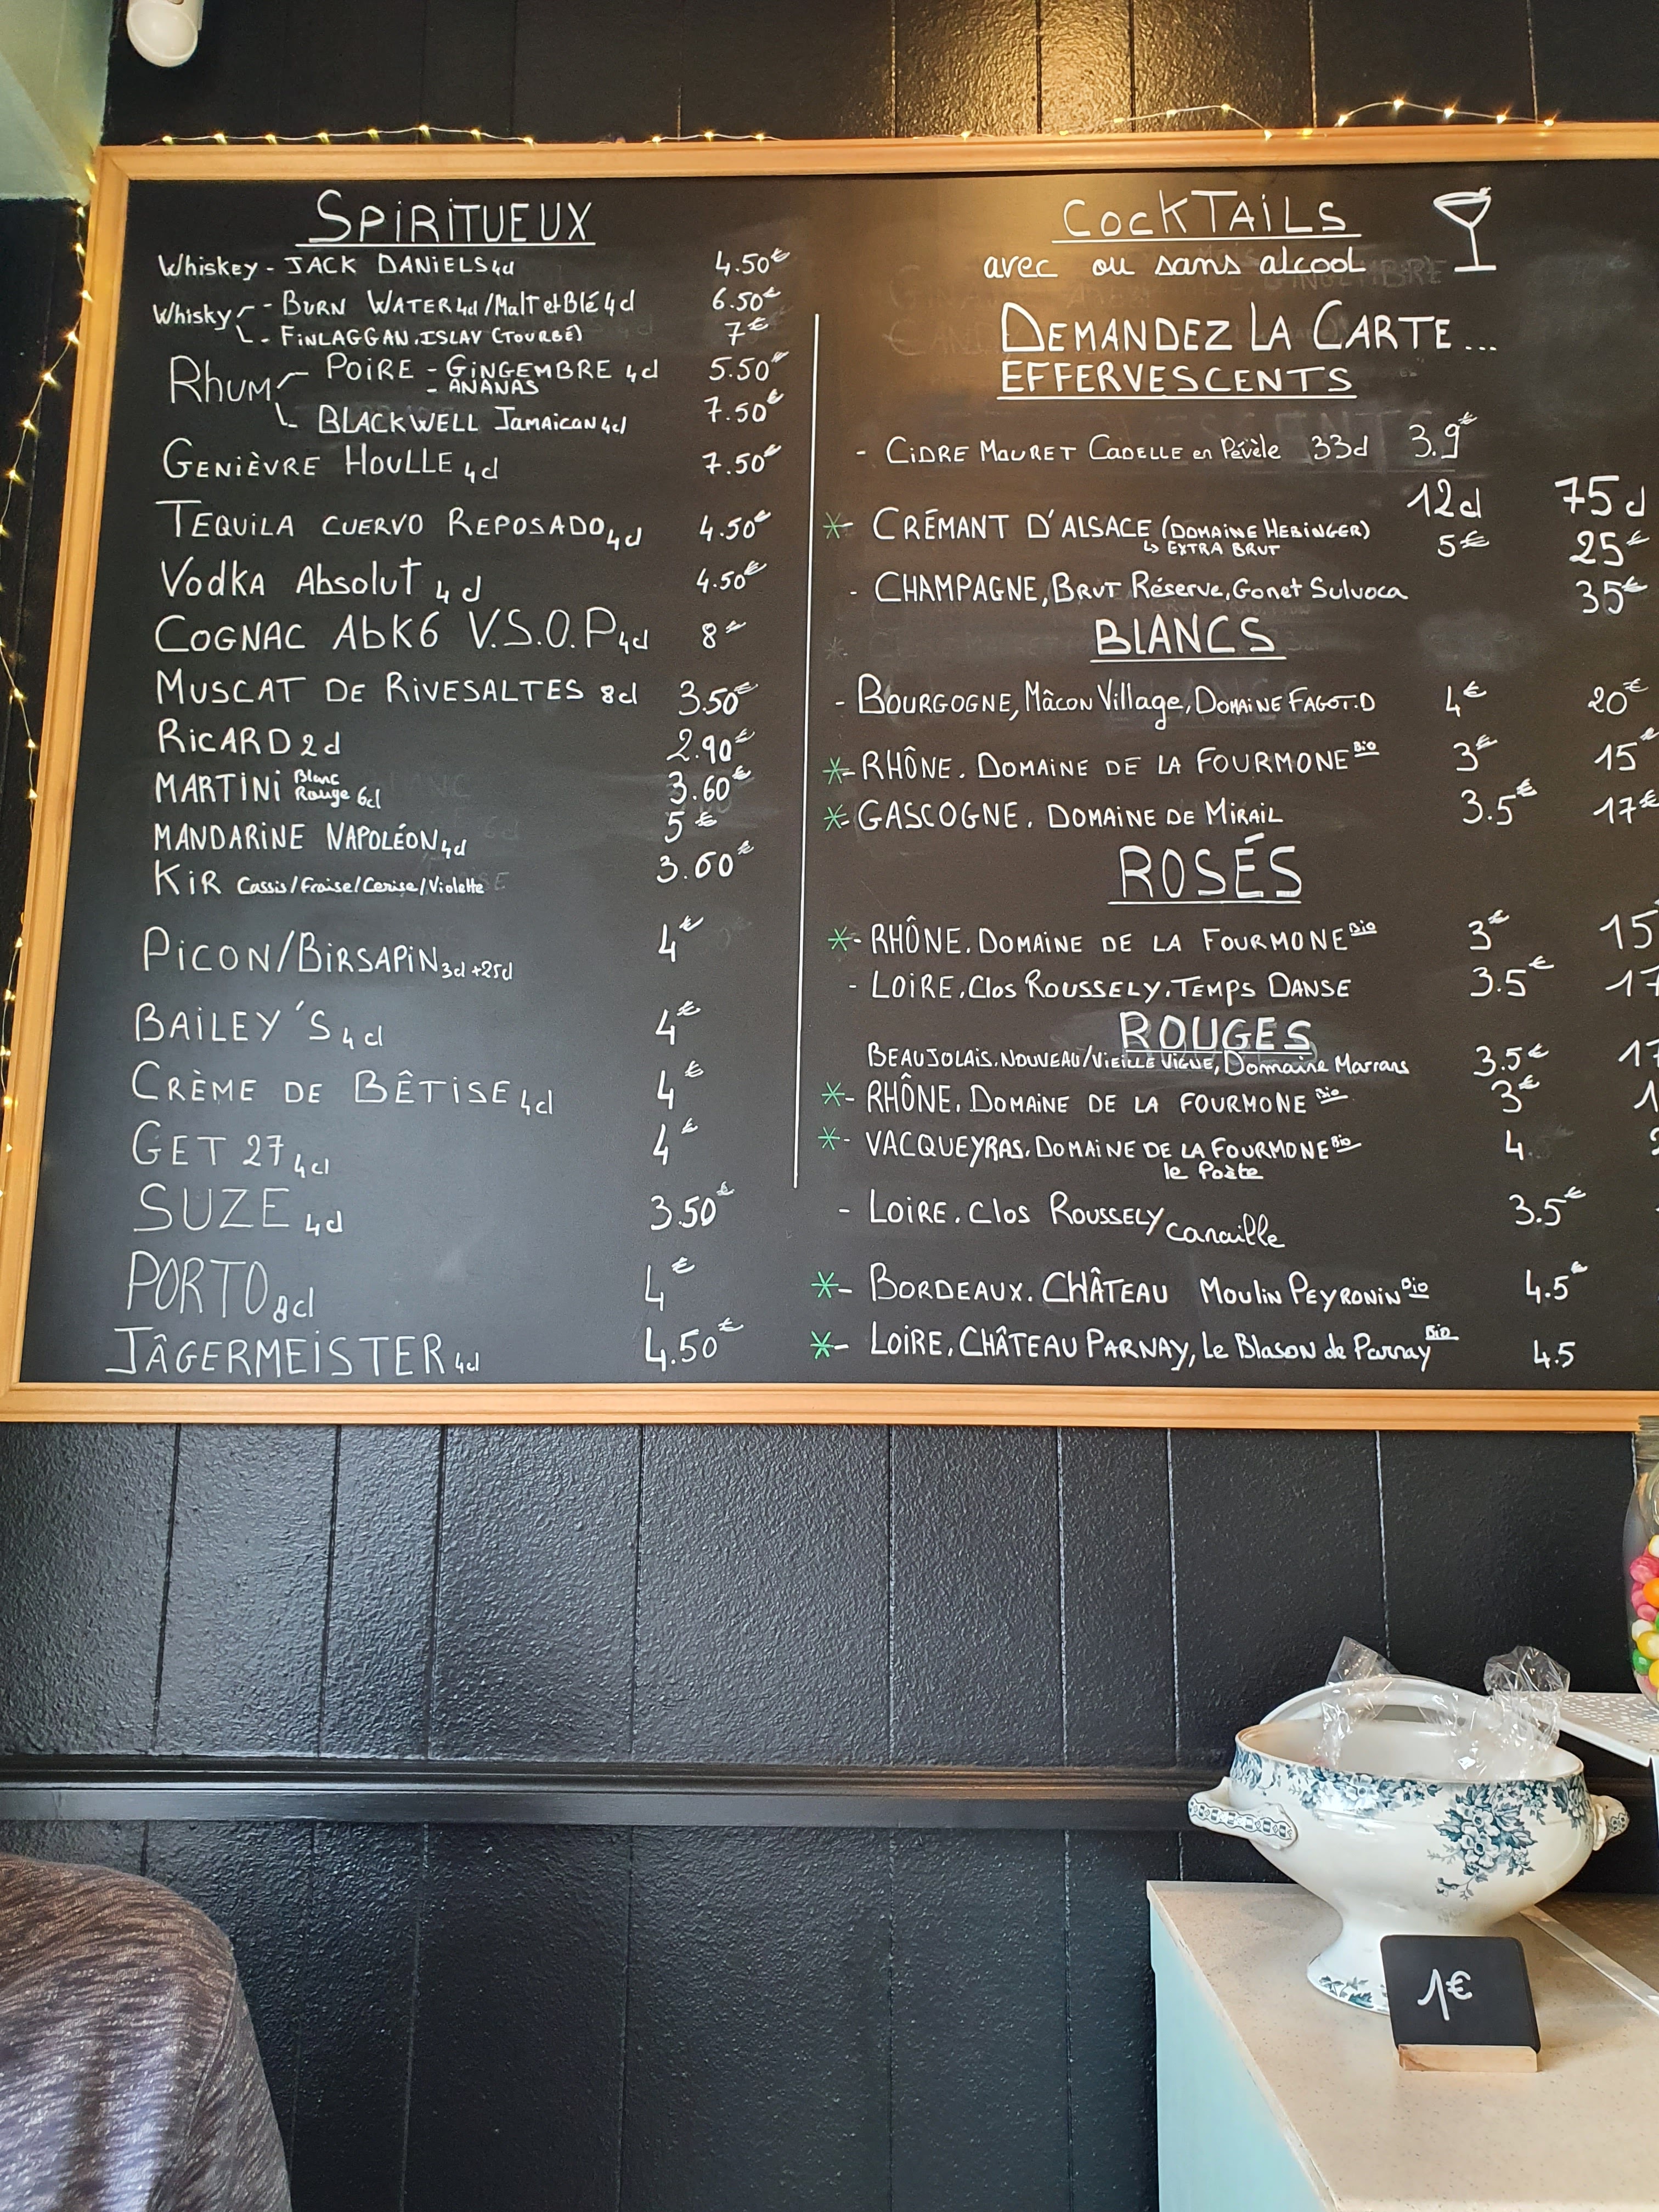 SPIRITUEUX
Whiskey - JACK DANIELS 4cl 4.50€
Whisky - BURN WATER 4cl / Malt et Blé 4cl 6.50€
- FINLAGGAN, ISLAY (TOURBÉ) 7€
Rhum POIRE - GINGEMBRE 4cl 5.50€
- ANANAS
BLACKWELL Jamaican 4cl 7.50€
GENIÈVRE HOULLE 4cl 7.50€
TEQUILA CUERVO REPOSADO 4cl 4.50€
VODKA Absolut 4cl 4.50€
COGNAC AbK6 V.S.O.P 4cl 8€
MUSCAT DE RIVESALTES 8cl 3.50€
RICARD 2cl 2.90€
MARTINI Blanc Rouge 6cl 3.60€
MANDARINE NAPOLÉON 4cl 5€
KIR Cassis/Fraise/Cerise/Violette 3.60€
PICON/BIRSAPIN 3cl + 25cl 4€
BAILEY'S 4cl 4€
CRÈME DE BÊTISE 4cl 4€
GET 27 4cl 4€
SUZE 4cl 3.50€
PORTO 8cl 4€
JÂGERMEISTER 4cl 4.50€
COCKTAILS
avec ou sans alcool
DEMANDEZ LA CARTE...
EFFERVESCENTS
- CIDRE MAURET CADELLE en Pévèle 33cl 3.9€
12cl 75cl
*- CRÉMANT D'ALSACE (DOMAINE HEBINGER) 5€ 25€
↳ EXTRA BRUT
- CHAMPAGNE, BRUT Réserve, Gonet Sulvoca 35€
BLANCS
- BOURGOGNE, Mâcon Village, DOMAINE FAGOT.D 4€ 20€
*- RHÔNE. DOMAINE DE LA FOURMONE Bio 3€ 15€
*- GASCOGNE. DOMAINE DE MIRAIL 3.5€ 17€
ROSÉS
*- RHÔNE. DOMAINE DE LA FOURMONE Bio 3€ 15
- LOIRE. Clos ROUSSELY. TEMPS DANSE 3.5€ 17
ROUGES
BEAUJOLAIS. NOUVEAU/VIEILLE VIGNE, Domaine Marrans 3.5€ 17
*- RHÔNE. DOMAINE DE LA FOURMONE Bio 3€ 1
*- VACQUEYRAS. DOMAINE DE LA FOURMONE Bio 4.
le Poète
- LOIRE. Clos ROUSSELY Canaille 3.5€
*- BORDEAUX. CHÂTEAU MOULIN PEYRONIN Bio 4.5€
*- LOIRE, CHÂTEAU PARNAY, Le Blason de Parnay Bio 4.5
1€